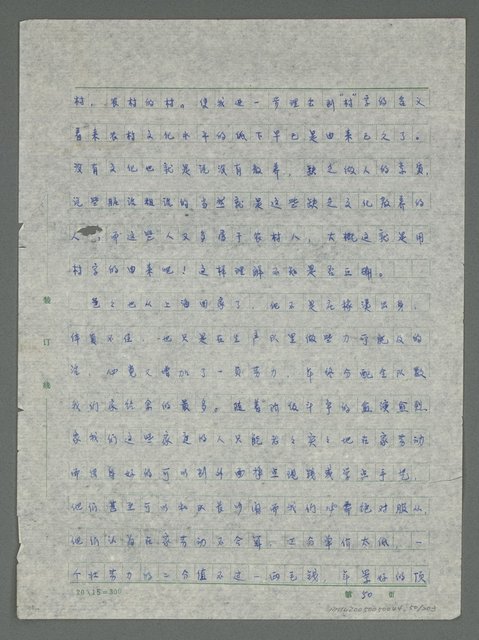 村，农村的村。使我进一步理会到“村”字的含义
看来农村文化水平的低下早已是由来已久了。
没有文化也就是说没有教养，缺乏做人的素质，
说些脏话粗话的当然就是这些缺乏文化教养的
人，而这些人又多属于农村人，大概这就是用
村字的由来吧！这样理解不知是否正确。
爸爸也从上海回家了，他不是庄稼汉出身，
体质不佳，也只是在生产队里做些力可能及的
活，但竟又增加了一员劳力，年终分配全队数
我们家结余的最多。随着阶级斗争的愈演愈烈
象我们这些家庭的人只能老老实实地在家劳动
而出身好的可以到外面挣点现钱或学点手艺，
他们甚至可以和队长吵闹而我们必需绝对服从。
他们认为在家劳动不合算，工分单价太低，一
个壮劳力的工分值不过一两毛钱，年景好的顶
装
订
线
20×15=300
第 50 页
50/203